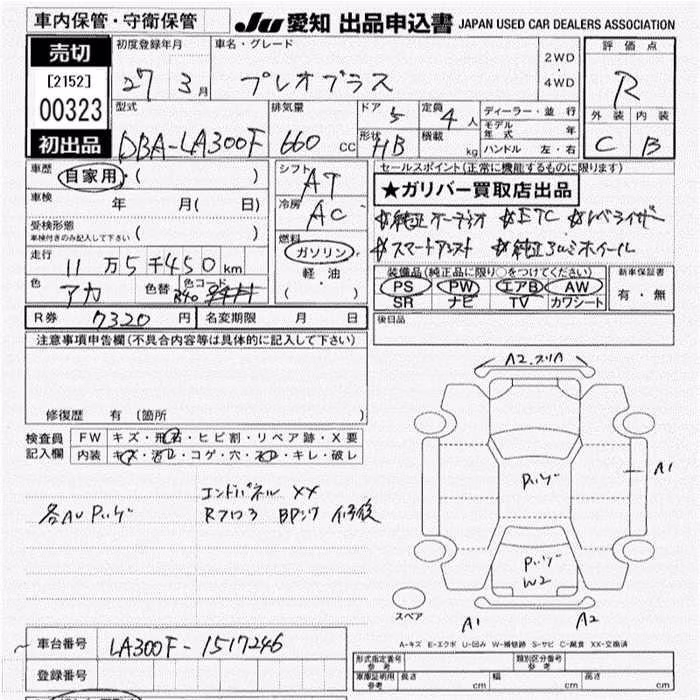 車内保管・守衛保管
JU 愛知 出品申込書 JAPAN USED CAR DEALERS ASSOCIATION
売切
[2152]
00323
初出品
初度登録年月
27 3月
車名・グレード
プレオプラス
2WD
・
4WD
評価点
R
外装 内装
C B
型式
DBA-LA300F
排気量
660 cc
ドア 5
形状 HB
定員 4人
積載 kg
ディーラー・並行
モデル年式 年
ハンドル 左・右
車歴
自家用・( )
車検 年 月( 日)
受検形態
車検付きのみ記入して下さい ( )
走行 11万5千450km
色 アカ 色替 色コード R40
シフト AT
冷房 AC
燃料
ガソリン
軽・油
( )
セールスポイント(正常に機能するものに限ります)
★ガリバー買取店出品
純正オーディオ ETC レベライザー
スマートアシスト 純正アルミホイール
装備品(純正品に限り○をつけてください)
PS PW エアB AW
SR ナビ TV カワシート
新車保証書
有・無
R券 7320円 名変期限 月 日
後日品
注意事項申告欄(不具合内容等は具体的に記入して下さい)
修復歴 有 (箇所 )
検査員記入欄
FW キズ・飛石・ヒビ割・リペア跡・X要
内装 キズ・汚レ・コゲ・穴・スレ・キレ・破レ
エンドパネル XX
各AUPハゲ Rフロア BPング 修後
A2.スリA
Pハゲ
A1
Pハゲ
W2
スペア
A1 A2
A-キズ E-エクボ U-凹み W-補修跡 S-サビ C-腐食 XX-交換済
車台番号 LA300F-1517246
登録番号
形式指定番号 参考 類別区分番号 参考
車庫証明用 参考 長さ cm 幅 cm 高さ cm